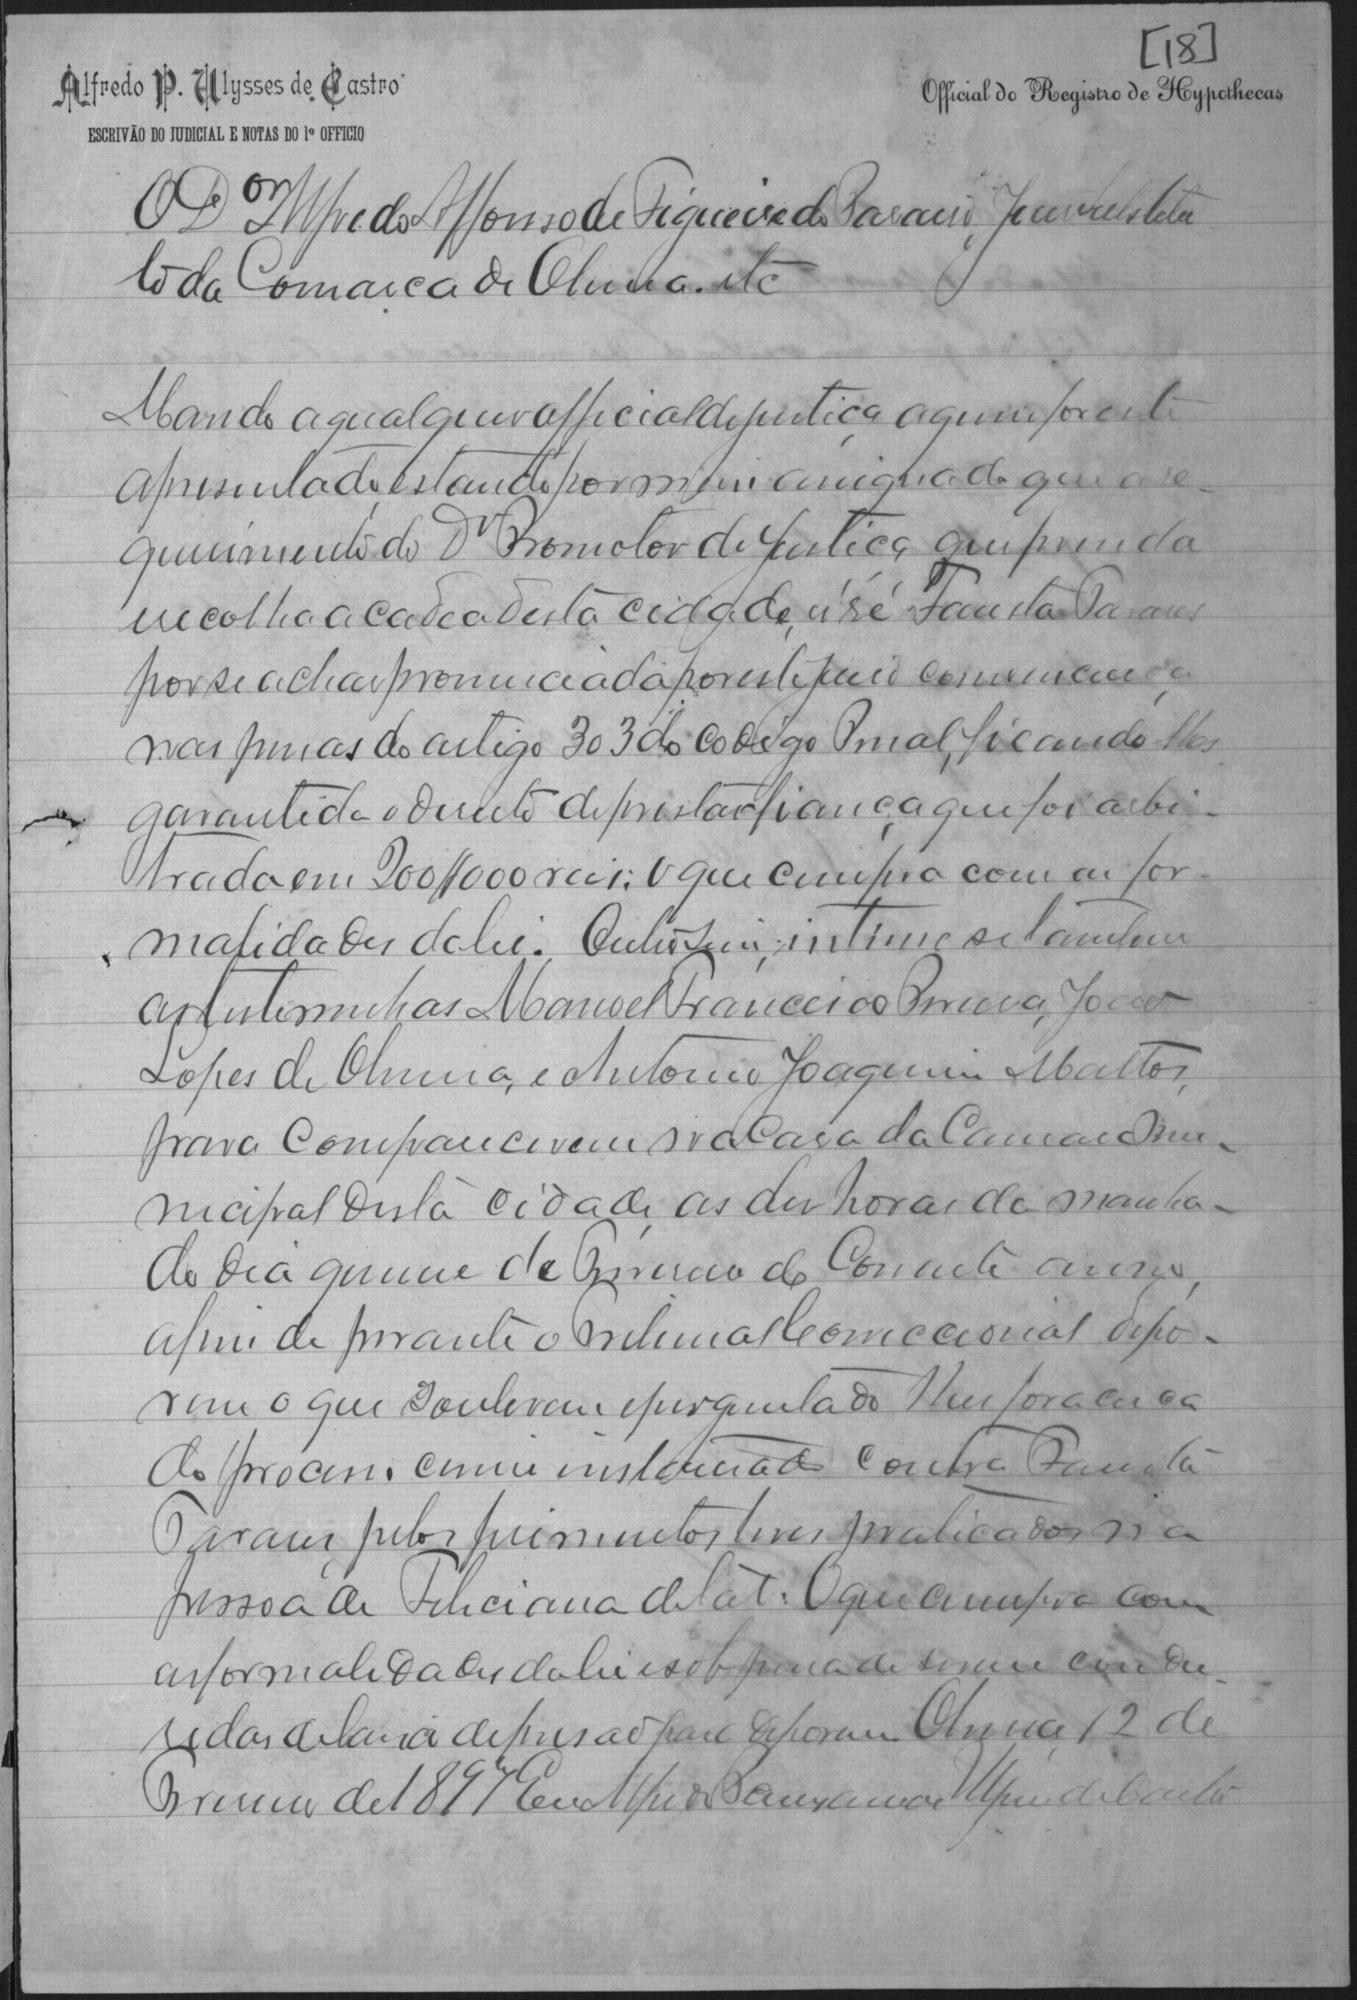 [18]
Alfredo P. Ulysses de Castro
Official do Registro de Hypothecas
ESCRIVÃO DO JUDICIAL E NOTAS DO 1º OFFICIO
O Dor Alfredo Affonso de Figueiredo
to da Comarca de etc
Mando a qualquer official de justiça a quem for este
apresentado, estando por mim assignado que a re-
querimento do Dr Promotor de Justiça, que prenda
e recolha a cadea desta cidade, a ré Fausta Tavares
por se achar pronunciada por este juiso
nas penas do artigo 303 do Codigo Penal, ficando lhes
garantida o direito de prestar fiança que foi arbi-
trada em 200$000 reis; o que cumpra com as for-
malidades da lei. Outro sim, intime se tambem
as testemunhas Manoel Francisco
Lopes de e Antonio Joaquim Mattos,
para comparecerem na Casa da Camara Mu-
nicipal desta cidade, as dez horas da manha-
do dia quinse de do Corrente anno,
afim de perante o Tribunal Correccional depo-
rem o que souberem e perguntado lhes for acerca
do processo crime instaurado contra Fausta
Tavares, pelos ferimentos leves praticados na
pessoa de Feliciana de tal. O que cumpra com
as formalidades da lei e sob pena de serem condu-
sidas debaixo de prisão para deporem. 12 de
de 1897 Eu Alfredo